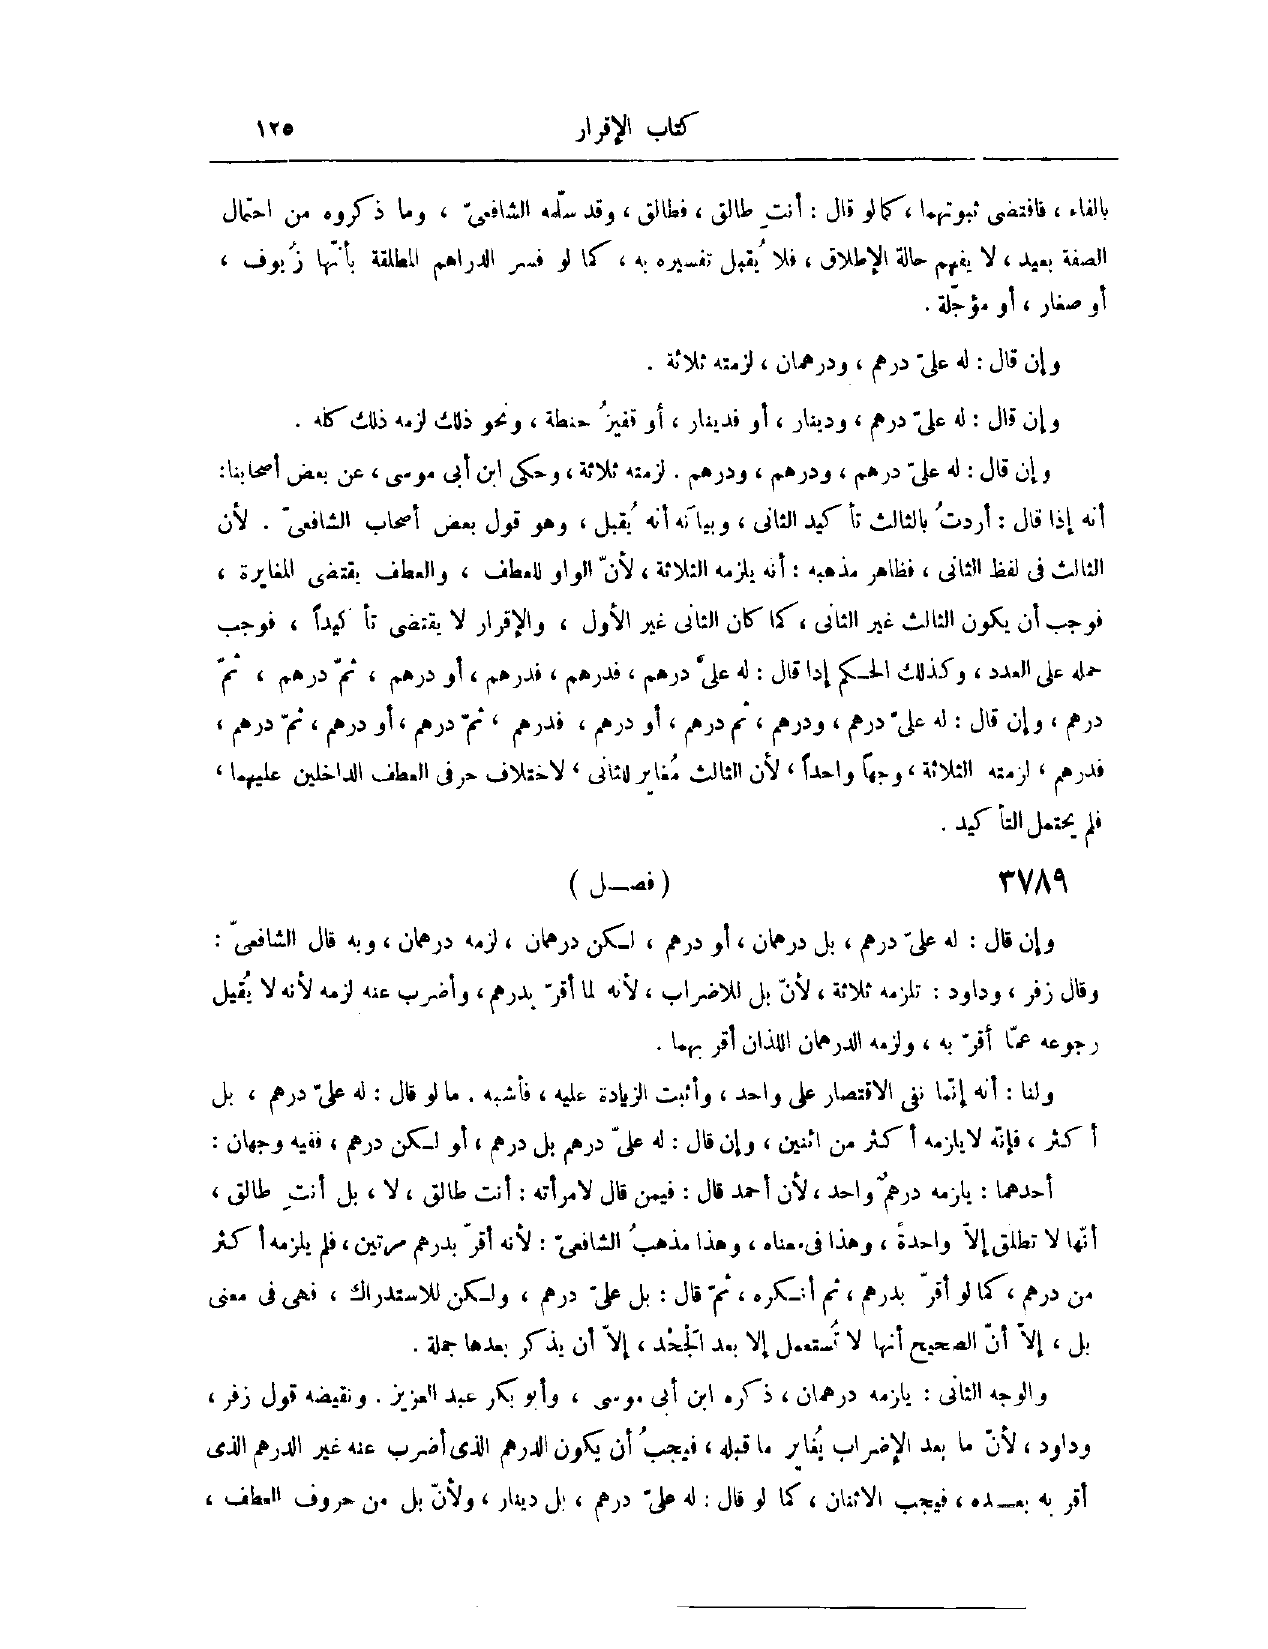 كتاب الإقرار ١٢٥
بالفاء ، فاقتضى ثبوتهما ، كما لو قال : أنتِ طالق ، فطالق ، وقد سلّمه الشافعىّ ، وما ذكروه من احتمال
الصفة بعيد ، لا يفهم حالة الإطلاق ، فلا يُقبل تفسيره به ، كما لو فسر الدراهم المطلقة بأنّها زُيوف ،
أو صغار ، أو مؤجّلة .
وإن قال : له علىّ درهم ، ودرهمان ، لزمته ثلاثة .
وإن قال : له علىّ درهم ، ودينار ، أو فدينار ، أو قفيزُ حنطة ، ونحو ذلك لزمه ذلك كله .
وإن قال : له علىّ درهم ، ودرهم ، ودرهم . لزمته ثلاثة ، وحكى ابن أبى موسى ، عن بعض أصحابنا :
أنه إذا قال : أردتُ بالثالث تأكيد الثانى ، وبيانه أنه يُقبل ، وهو قول بعض أصحاب الشافعىّ . لأن
الثالث فى لفظ الثانى ، فظاهر مذهبه : أنه يلزمه الثلاثة ، لأنّ الواو للعطف ، والعطف يقتضى المغايرة ،
فوجب أن يكون الثالث غير الثانى ، كما كان الثانى غير الأول ، والإقرار لا يقتضى تأكيداً ، فوجب
حمله على العدد ، وكذلك الحكم إذا قال : له علىّ درهم ، فدرهم ، فدرهم ، أو درهم ، ثمّ درهم ، ثمّ
درهم ، وإن قال : له علىّ درهم ، ودرهم ، ثم درهم ، أو درهم ، فدرهم ، ثمّ درهم ، أو درهم ، ثمّ درهم ،
فدرهم ، لزمته الثلاثة ، وجهاً واحداً ، لأن الثالث مُغايرٍ للثانى ، لاختلاف حرفى العطف الداخلين عليهما ،
فلم يحتمل التأكيد .
٣٧٨٩ ( فصــل )
وإن قال : له علىّ درهم ، بل درهمان ، أو درهم ، لكن درهمان ، لزمه درهمان ، وبه قال الشافعىّ :
وقال زفر ، وداود : تلزمه ثلاثة ، لأنّ بل للاضراب ، لأنه لما أقرّ بدرهم ، وأضرب عنه لزمه لأنه لا يُقبل
رجوعه عمّا أقرّ به ، ولزمه الدرهمان اللذان أقر بهما .
ولنا : أنه إنّما نفى الاقتصار على واحد ، وأثبت الزيادة عليه ، فأشبه . ما لو قال : له علىّ درهم ، بل
أكثر ، فإنّه لا يلزمه أكثر من اثنين ، وإن قال : له علىّ درهم بل درهم ، أو لكن درهم ، ففيه وجهان :
أحدهما : يلزمه درهمٌ واحد ، لأن أحمد قال : فيمن قال لامرأته : أنت طالق ، لا ، بل أنتِ طالق ،
أنّها لا تطلق إلاّ واحدةً ، وهذا فى معناه ، وهذا مذهبُ الشافعىّ : لأنه أقرّ بدرهم مرتين ، فلم يلزمه أكثر
من درهم ، كما لو أقرّ بدرهم ، ثم أنكره ، ثمّ قال : بل علىّ درهم ، ولكن للاستدراك ، فهى فى معنى
بل ، إلاّ أنّ الصحيح أنها لا تُستعمل إلا بعد الجَحْد ، إلاّ أن يذكر بعدها جملة .
والوجه الثانى : يلزمه درهمان ، ذكره ابن أبى موسى ، وأبو بكر عبد العزيز . ونقيضه قول زفر ،
وداود ، لأنّ ما بعد الإضراب يُغاير ما قبله ، فيجبُ أن يكون الدرهم الذى أضرب عنه غير الدرهم الذى
أقر به بعــده ، فيجب الاثنان ، كما لو قال : له علىّ درهم ، بل دينار ، ولأنّ بل من حروف العطف ،